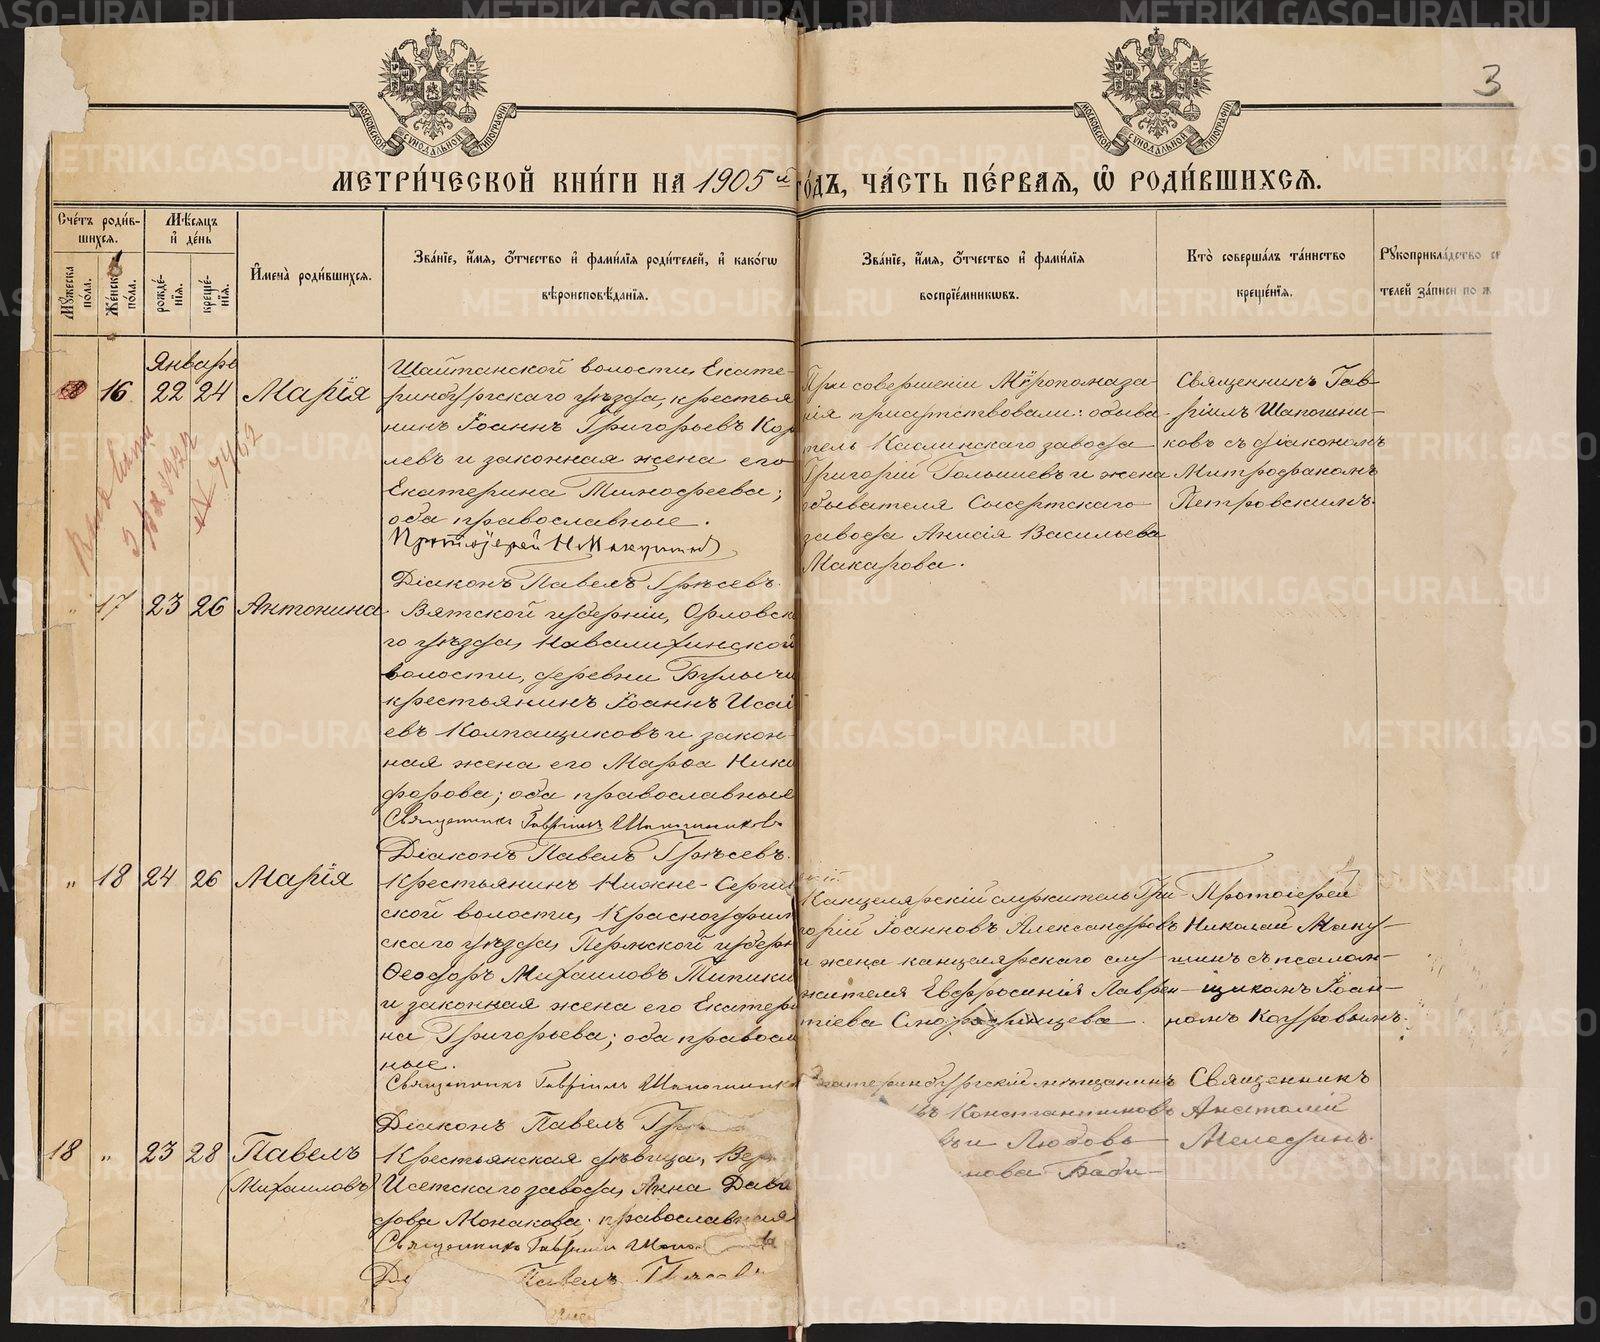 3
МОСКОВСКОЙ СѴНОДАЛЬНОЙ ТИПОГРАФІИ
МОСКОВСКОЙ СѴНОДАЛЬНОЙ ТИПОГРАФІИ
МЕТРИ́ЧЕСКОЙ КНИ́ГИ НА 1905й го́дъ, ча́сть пе́рвая, ѽ роди́вшихся.
Сче́тъ роди́вшихся.
Мужеска по́ла.
Же́нска по́ла.
Мѣ́сяцъ и де́нь
рожде́нїя.
креще́нїя.
Имена̀ роди́вшихся.
Зва́нїе, и́мя, ѻ҆́тчество и фами́лїя роди́телей, и како́гѡ
вѣроисповѣ́данїя.
Зва́нїе, и́мя, ѻ҆́тчество и фами́лїя
воспрїе́мникѡвъ.
Кто̀ соверша́лъ та́инство
креще́нїя.
Рукоприкла́дство
телей за́писи по
Январь
16 22 24 Марія
Шайтанской волости, Екате-
ринбургскаго уѣзда, крестья
нинъ Іоаннъ Григорьевъ Кор
левъ и законная жена его
Екатерина Тимофеева;
оба православные.
Протоіерей Н. Макушинъ
Діаконъ Павелъ Грѣсевъ.
При совершеніи Мѵропомаза-
нія присутствовали: обыва-
тель Каслинскаго завода
Григорій Голышевъ и жена
обывателя Сысертскаго
завода Анисія Васильева
Макарова.
Священникъ Гав-
ріилъ Шапошни-
ковъ съ діакономъ
Митрофаномъ
Петровскимъ.
" 17 23 26 Антонина
Вятской губерніи, Орловска
го уѣзда, Навалихинской
волости, деревни Булычи
крестьянинъ Іоаннъ Исаі
евъ Колпащиковъ и закон-
ная жена его Марѳа Ники
форова; оба православные
Священникъ Гавріилъ Шапошниковъ
Діаконъ Павелъ Грѣсевъ.
" 18 24 26 Марія
Крестьянинъ Нижне-Сергин
ской волости, Красноуфим
скаго уѣзда, Пермской губерн
Ѳеодоръ Михаиловъ Типики
и законная жена его Екатери
на Григорьева; оба правосл
ные.
Священникъ Гавріилъ Шапошнико
Діаконъ Павелъ Гр
Канцелярскій служитель Гри-
горій Іоанновъ Александровъ
и жена канцелярскаго слу-
жителя Евфросинія Лаврен-
тіева
Протоіерей
Николай Маку-
шинъ съ псалом-
щикомъ Іоан-
номъ Коуровымъ.
18 " 23 28 Павелъ
(Михаиловъ)
Крестьянская дѣвица, Вер
Исетскаго завода, Анна Дави
дова Монакова; православная
Священникъ Гавріилъ Шапо
Павелъ
Екатеринбургскій мѣщанинъ
въ Константиновъ
и Любовь
нова Баби-
Священникъ
Анатолій
Мелефинъ.
METRIKI.GASO-URAL.RU